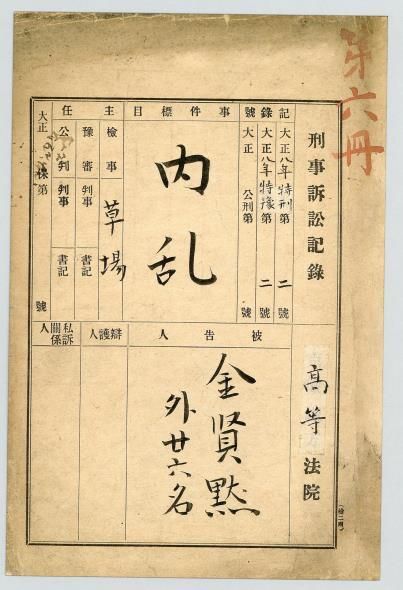 第六冊
刑事訴訟記錄
高等法院
記 大正八年特刑第 二 號
錄 大正八年特豫第 二 號
號 大正 公刑第 號
事件標目
內乱
主任
檢事 草場
豫審判事 書記
公判判事 書記
大正 保第 號
被告人
金賢黙
外廿六名
辯護人
私訴關係人